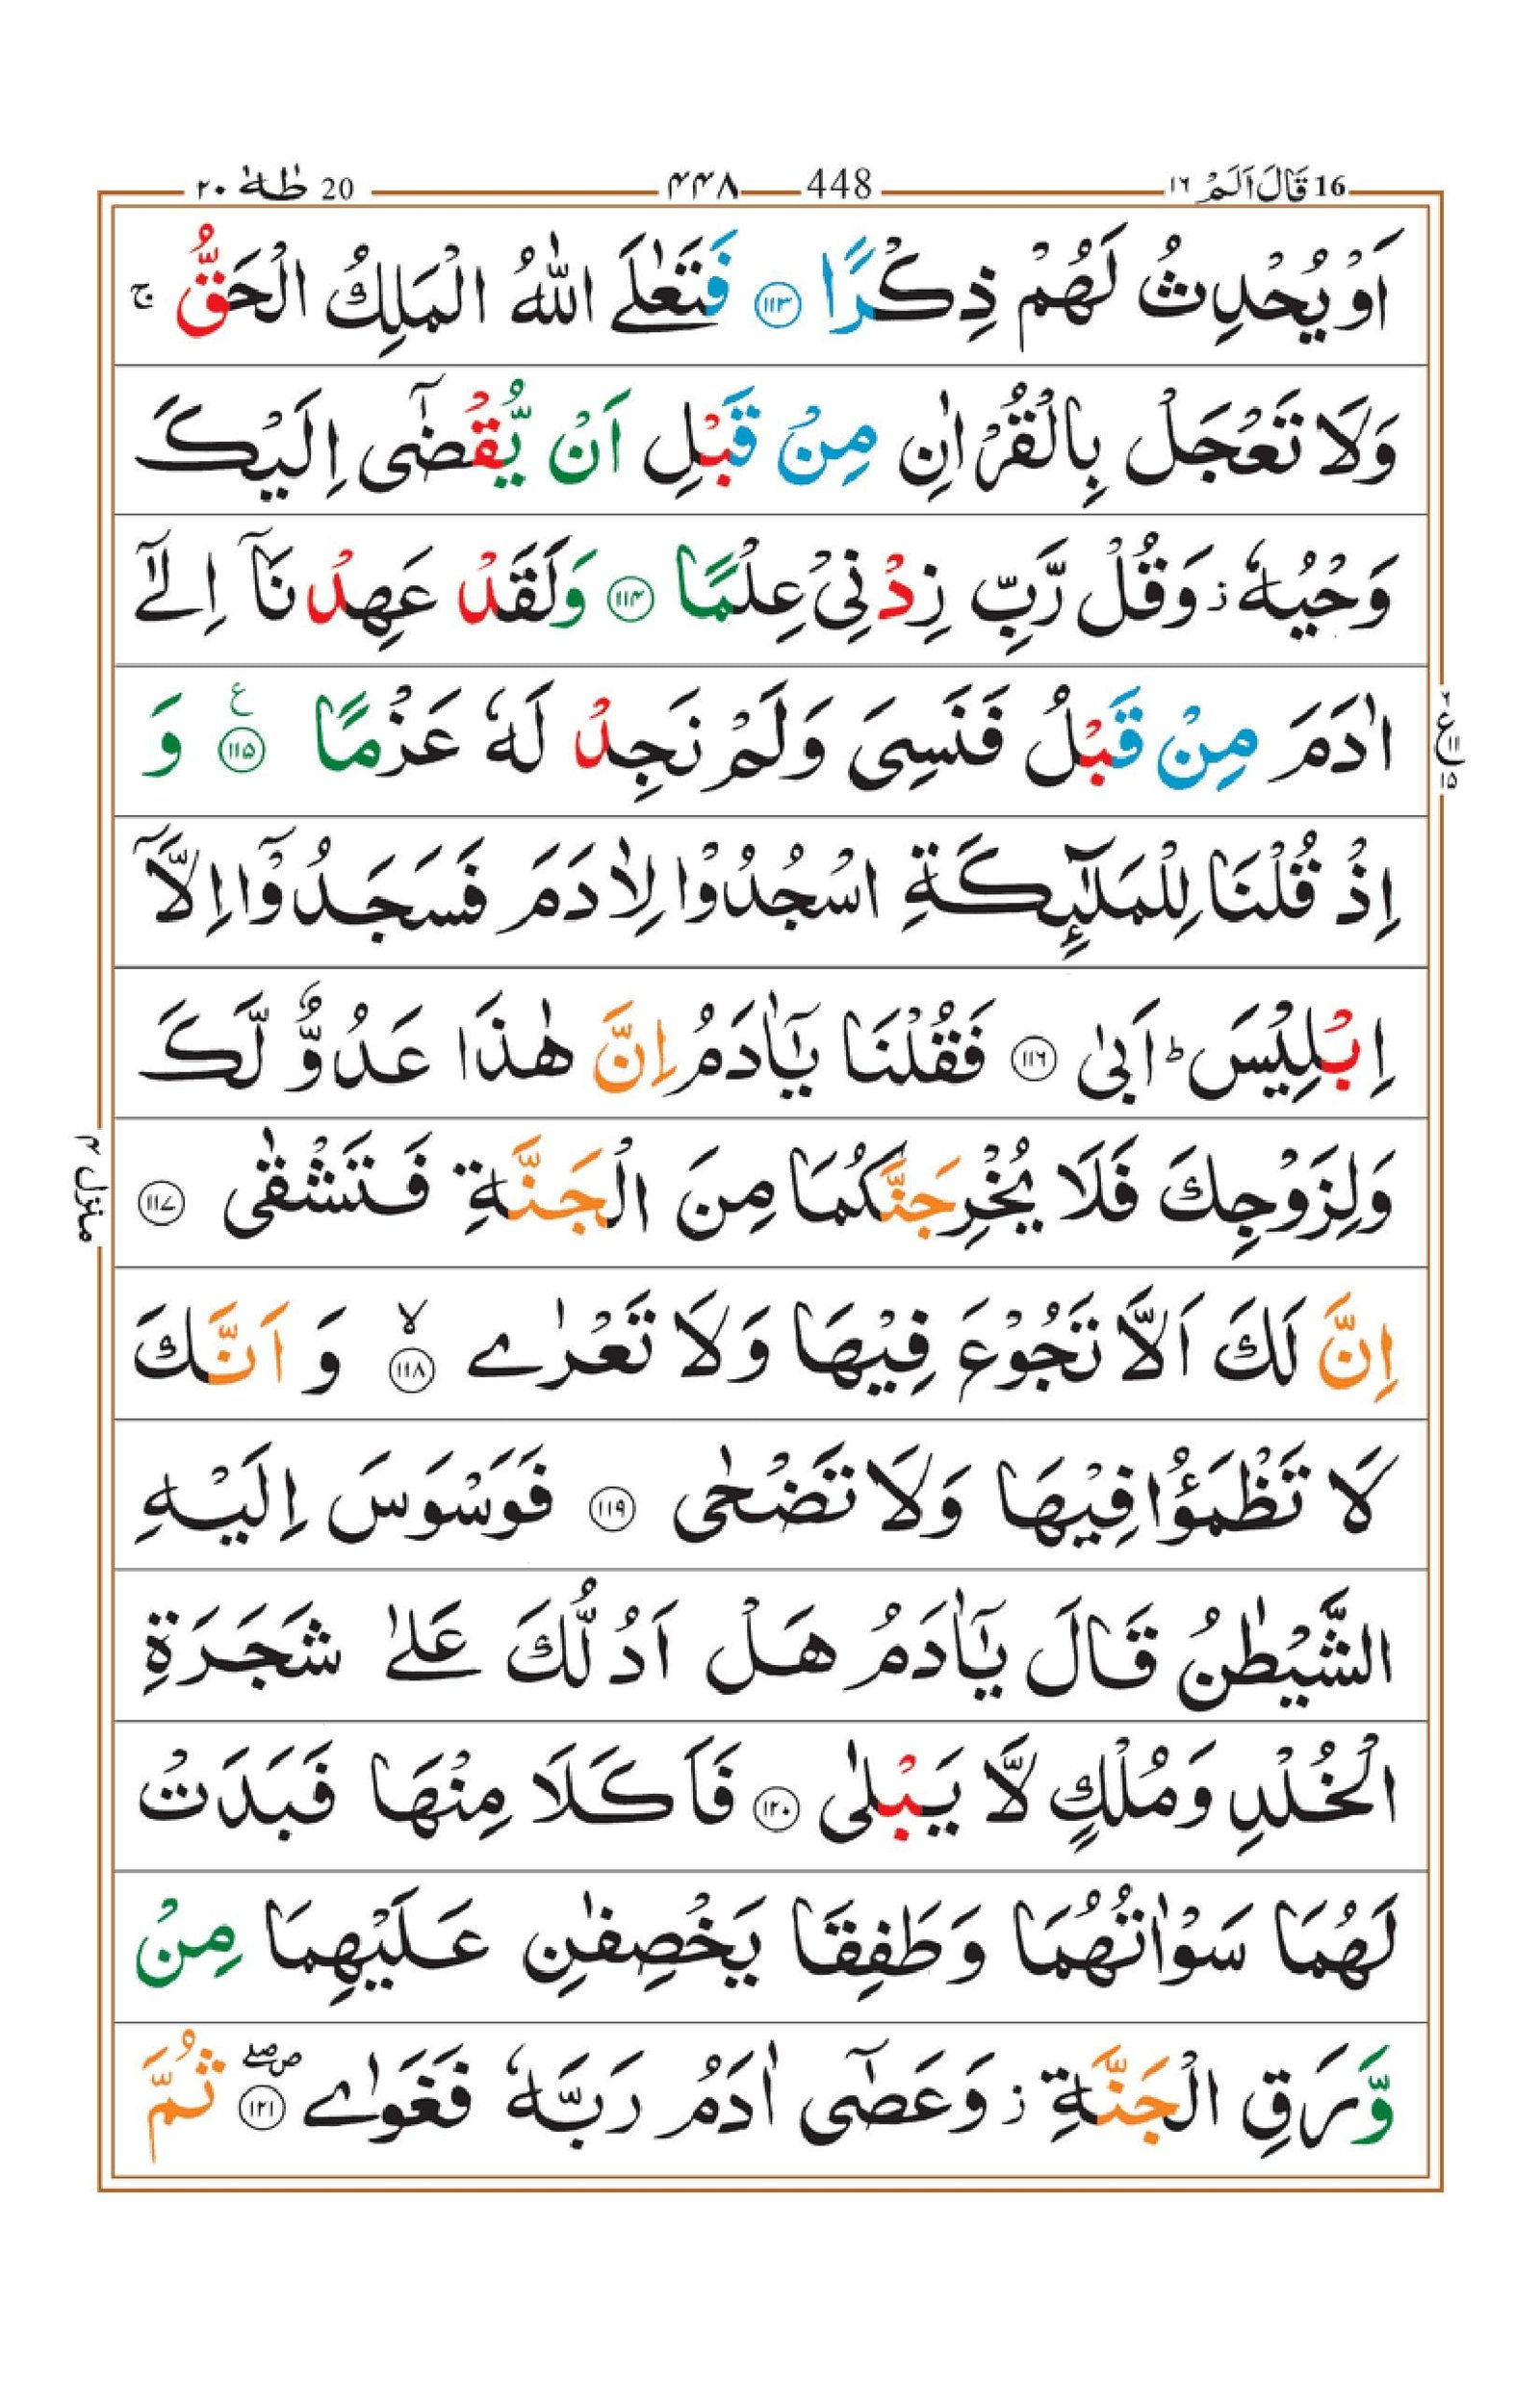 16 قَالَ اَلَمْ ١٦ 448 ۴۴۸ 20 طٰهٰ ٢٠
اَوْ يُحْدِثُ لَهُمْ ذِكْرًا ﴿۱۱۳﴾ فَتَعٰلَى اللّٰهُ الْمَلِكُ الْحَقُّ ۚ
وَلَا تَعْجَلْ بِالْقُرْاٰنِ مِنْ قَبْلِ اَنْ يُّقْضٰٓى اِلَيْكَ
وَحْيُهٗ ؗ وَقُلْ رَّبِّ زِدْنِيْ عِلْمًا ﴿۱۱۴﴾ وَلَقَدْ عَهِدْنَاۤ اِلٰٓى
اٰدَمَ مِنْ قَبْلُ فَنَسِيَ وَلَمْ نَجِدْ لَهٗ عَزْمًا ﴿۱۱۵﴾ ع وَ
ع ١١ ١٥
اِذْ قُلْنَا لِلْمَلٰٓئِكَةِ اسْجُدُوْا لِاٰدَمَ فَسَجَدُوْۤا اِلَّاۤ
اِبْلِيْسَ ؕ اَبٰى ﴿۱۱۶﴾ فَقُلْنَا يٰۤاٰدَمُ اِنَّ هٰذَا عَدُوٌّ لَّكَ
وَلِزَوْجِكَ فَلَا يُخْرِجَنَّكُمَا مِنَ الْجَنَّةِ فَتَشْقٰى ﴿۱۱۷﴾
منزل ۴
اِنَّ لَكَ اَلَّا تَجُوْعَ فِيْهَا وَلَا تَعْرٰى ﴿۱۱۸﴾ ۙ وَ اَنَّكَ
لَا تَظْمَؤُا فِيْهَا وَلَا تَضْحٰى ﴿۱۱۹﴾ فَوَسْوَسَ اِلَيْهِ
الشَّيْطٰنُ قَالَ يٰۤاٰدَمُ هَلْ اَدُلُّكَ عَلٰى شَجَرَةِ
الْخُلْدِ وَمُلْكٍ لَّا يَبْلٰى ﴿۱۲۰﴾ فَاَكَلَا مِنْهَا فَبَدَتْ
لَهُمَا سَوْاٰتُهُمَا وَطَفِقَا يَخْصِفٰنِ عَلَيْهِمَا مِنْ
وَّرَقِ الْجَنَّةِ ؗ وَعَصٰۤى اٰدَمُ رَبَّهٗ فَغَوٰى ﴿۱۲۱﴾ ۖ ثُمَّ